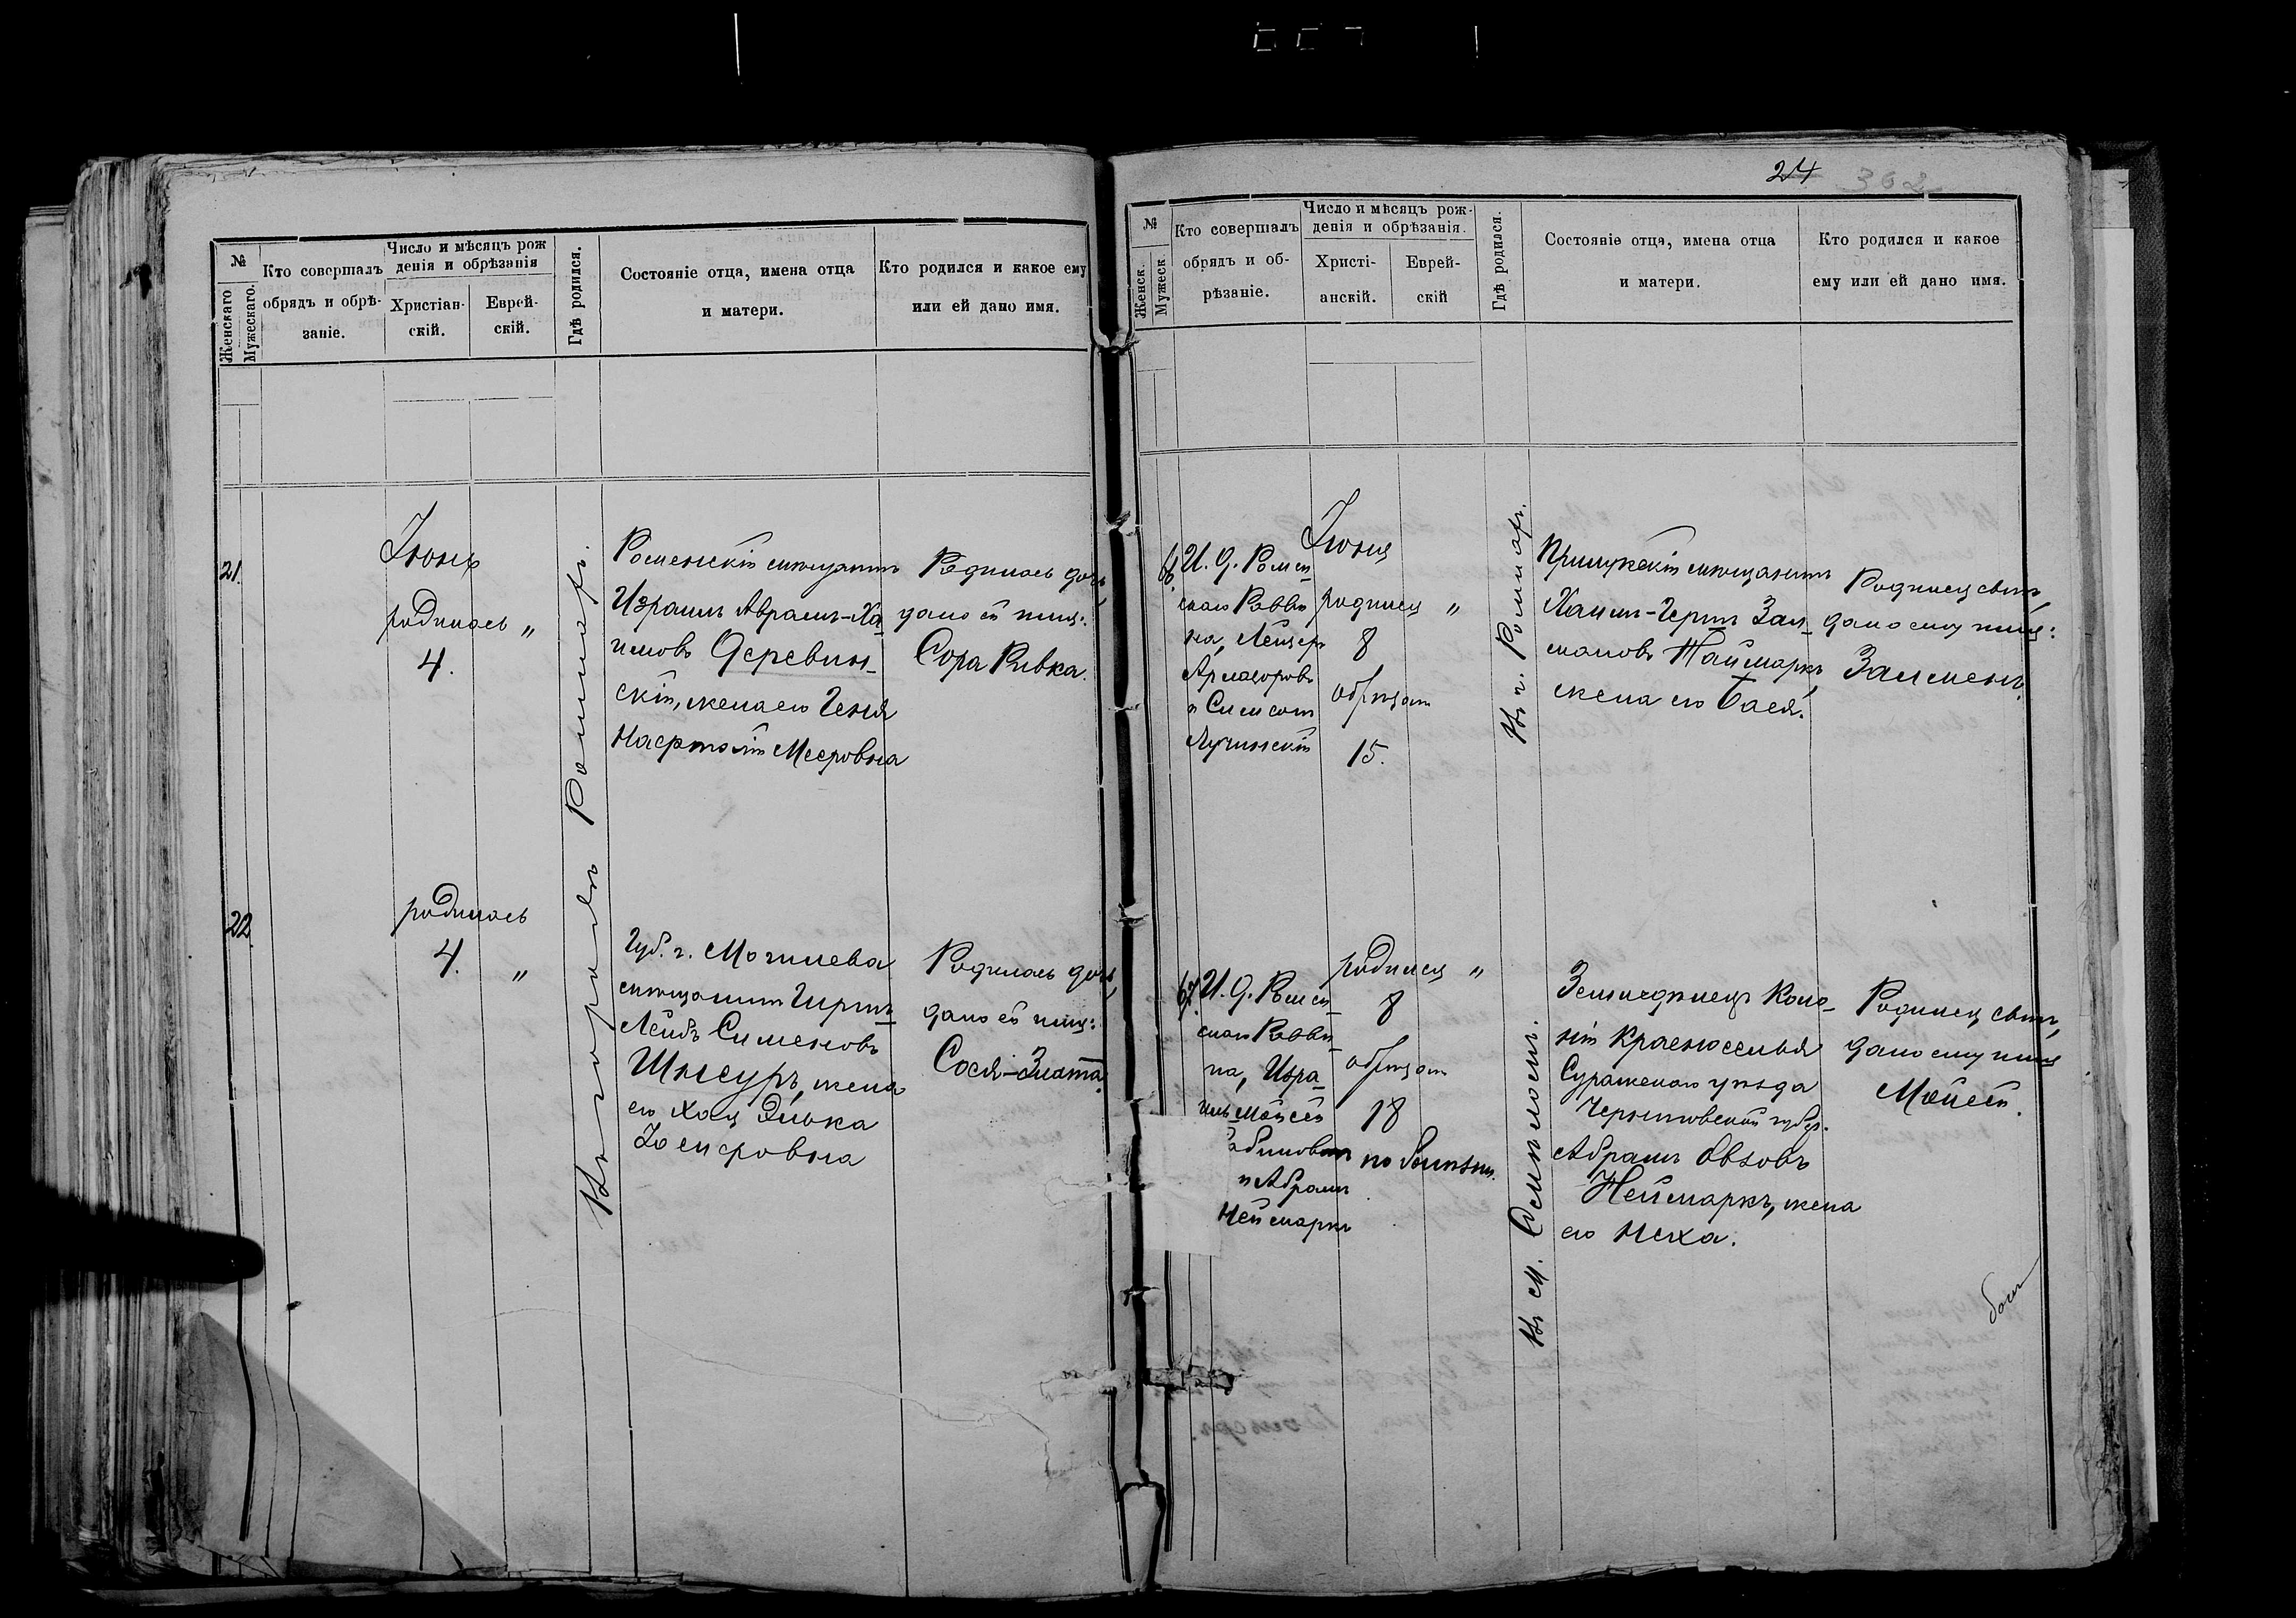 24 362
№
Женскаго
Мужескаго.
Кто совершалъ
обрядъ и обрѣ-
заніе.
Число и мѣсяцъ рож
денія и обрѣзанія
Христіан-
скій.
Еврей-
скій.
Гдѣ родился.
Состояніе отца, имена отца
и матери.
Кто родился и какое ему
или ей дано имя.
21.
Іюнь
родилась "
4.
Въ городѣ Ромнахъ.
Роменскій мѣщанинъ
Израиль Авраамъ-Ха-
имовъ Деревин-
скій, жена его Геня
Мееровна
Родилась дочь,
дано ей имя:
Сора Ривка.
22
родилась
4. "
Губ. г. Могилева
мѣщанинъ Гиршъ-
Лейбъ Сименовъ
Шнеуръ, жена
его Хая Элька
Іосифовна
Родилась дочь,
дано ей имя:
Сося-Злата.
№
Женск.
Мужеск.
Кто совершалъ
обрядъ и об-
рѣзаніе.
Число и мѣсяцъ рож-
денія и обрѣзанія.
Христі-
анскій.
Еврей-
скій
Гдѣ родился.
Состояніе отца, имена отца
и матери.
Кто родился и какое
ему или ей дано имя.
66.
И. д. Ромен
скаго Равви
на, Лейзеръ
и Симсон
Лучинскій
Іюня
родился "
8
обрѣзан
15.
Въ г. Ромнахъ.
Прилукскій мѣщанинъ
Хаимъ-Гершъ Зал-
мановъ Наймаркъ,
жена его Бася.
Родился сынъ,
дано ему имя:
Залменъ.
67.
И. д. Ромен-
скаго Равви-
на, Изра-
иль Мойсей
абинович
и Абрамъ
Неймаркъ
родился "
8
обрѣзан
18
по болѣзни.
Въ м.
Земледѣлецъ Коло-
ніи Красноселья
Суражскаго уѣзда
Черниговской губер.
Абрамъ Овзовъ
Неймаркъ, жена
его Неха.
Родился сынъ,
дано ему имя
Мойсей.